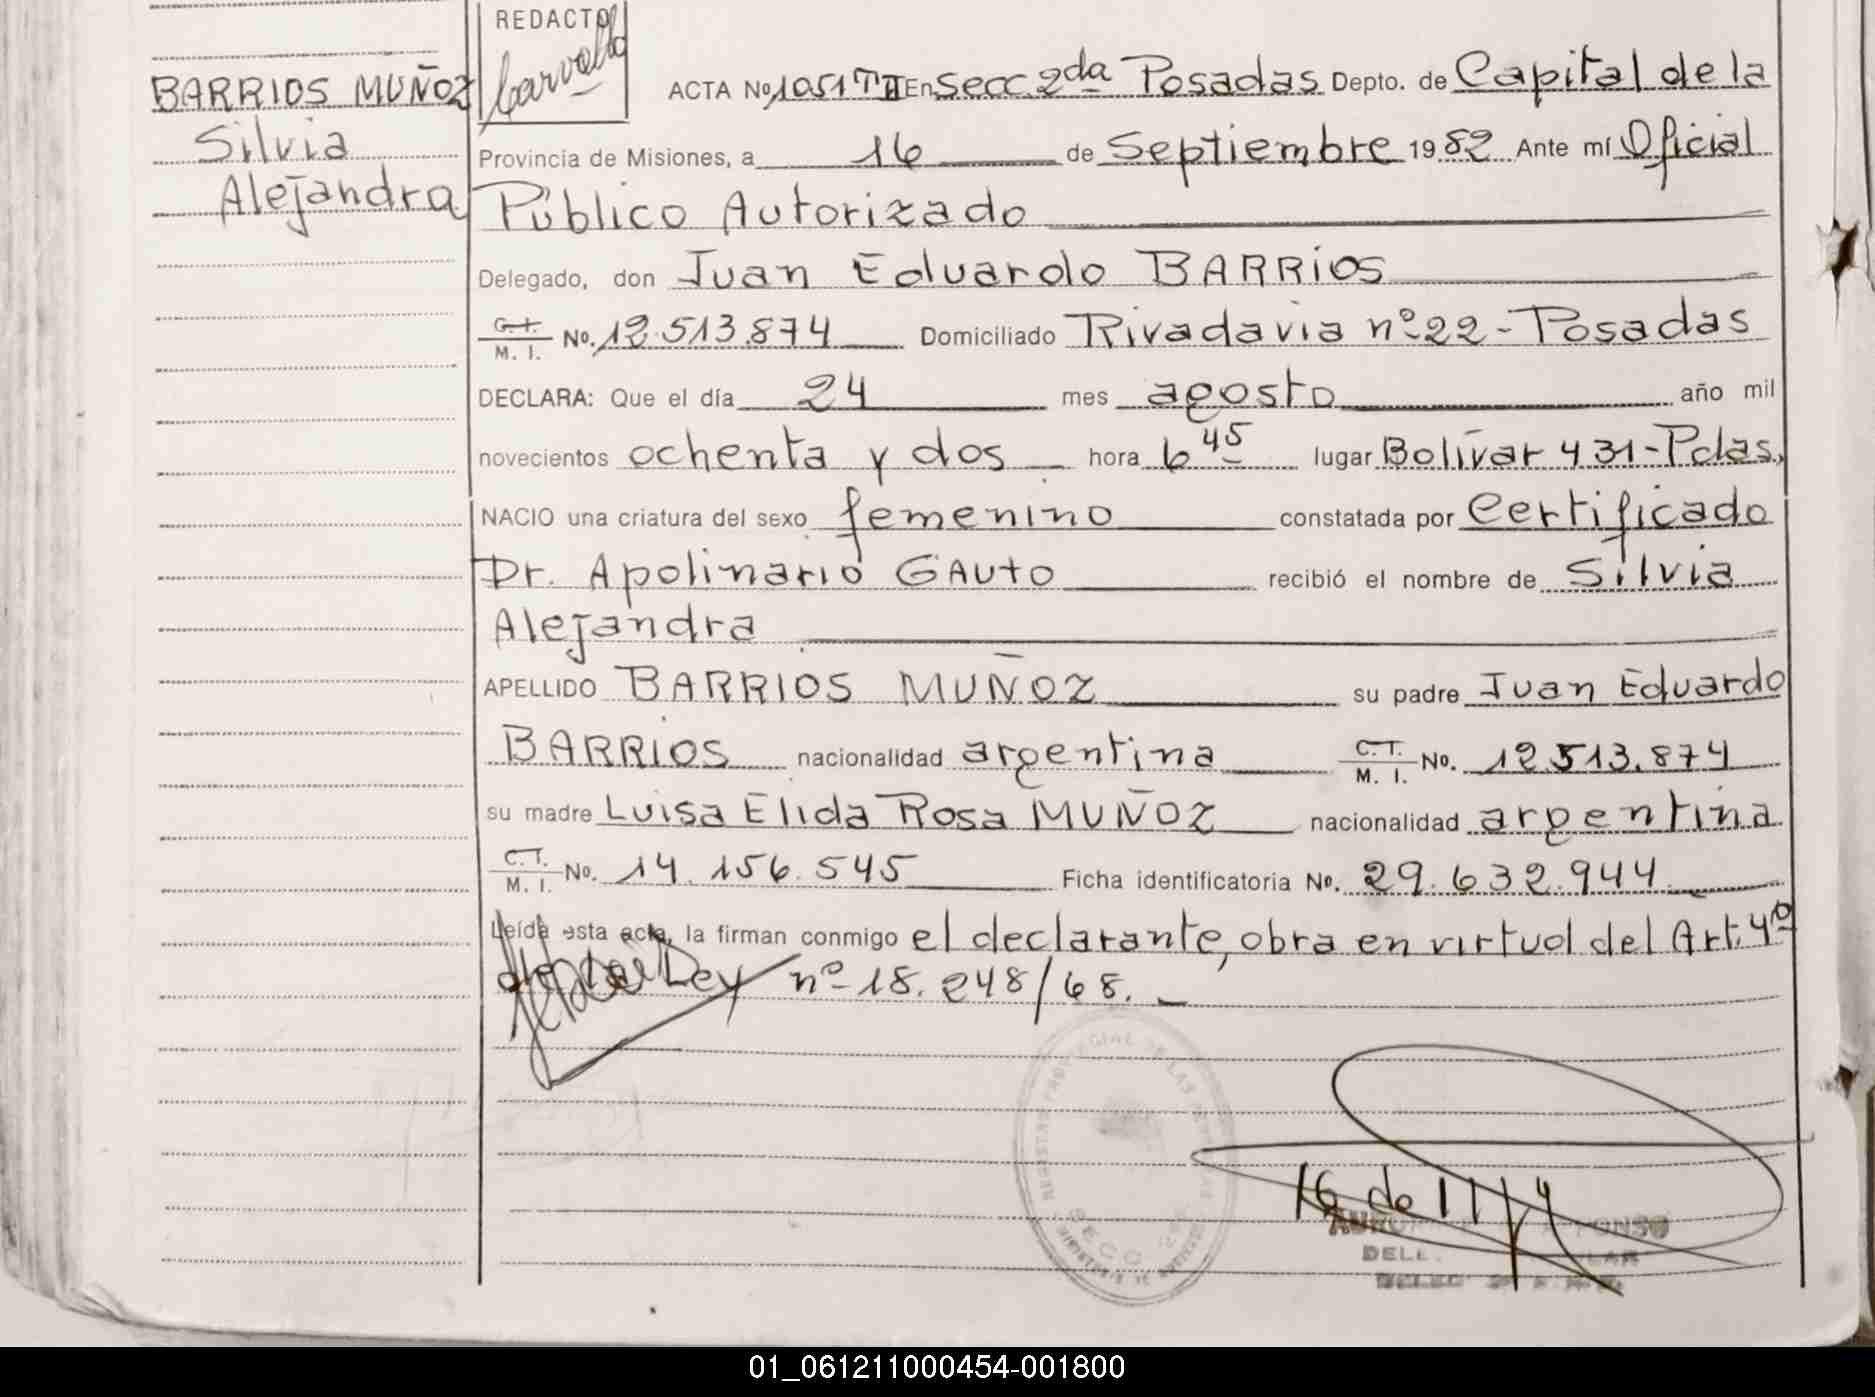 REDACTO
Carvallo
BARRIOS MUÑOZ
Silvia
Alejandra
ACTA No. 1051 T II En Secc. 2da Posadas Depto. de Capital de la
Provincia de Misiones, a 16 de Septiembre 1982 Ante mí Oficial
Público Autorizado
Delegado, don Juan Eduardo BARRIOS
C.I. M. I. No. 12.513.874 Domiciliado Rivadavia nº 22 - Posadas
DECLARA: Que el día 24 mes agosto año mil
novecientos ochenta y dos hora 6 45 lugar Bolívar 431 - Pdas,
NACIO una criatura del sexo femenino constatada por Certificado
Dr. Apolinario GAUTO recibió el nombre de Silvia
Alejandra
APELLIDO BARRIOS MUÑOZ su padre Juan Eduardo
BARRIOS nacionalidad argentina C.T. M. I. No. 12.513.874
su madre Luisa Elida Rosa MUÑOZ nacionalidad argentina
C.T. M. I. No. 14.156.545 Ficha identificatoria No. 29.632.944
Leída esta acta, la firman conmigo el declarante, obra en virtud del Art. 4º
de la Ley nº 18.248/68.
SECC.
01_061211000454-001800